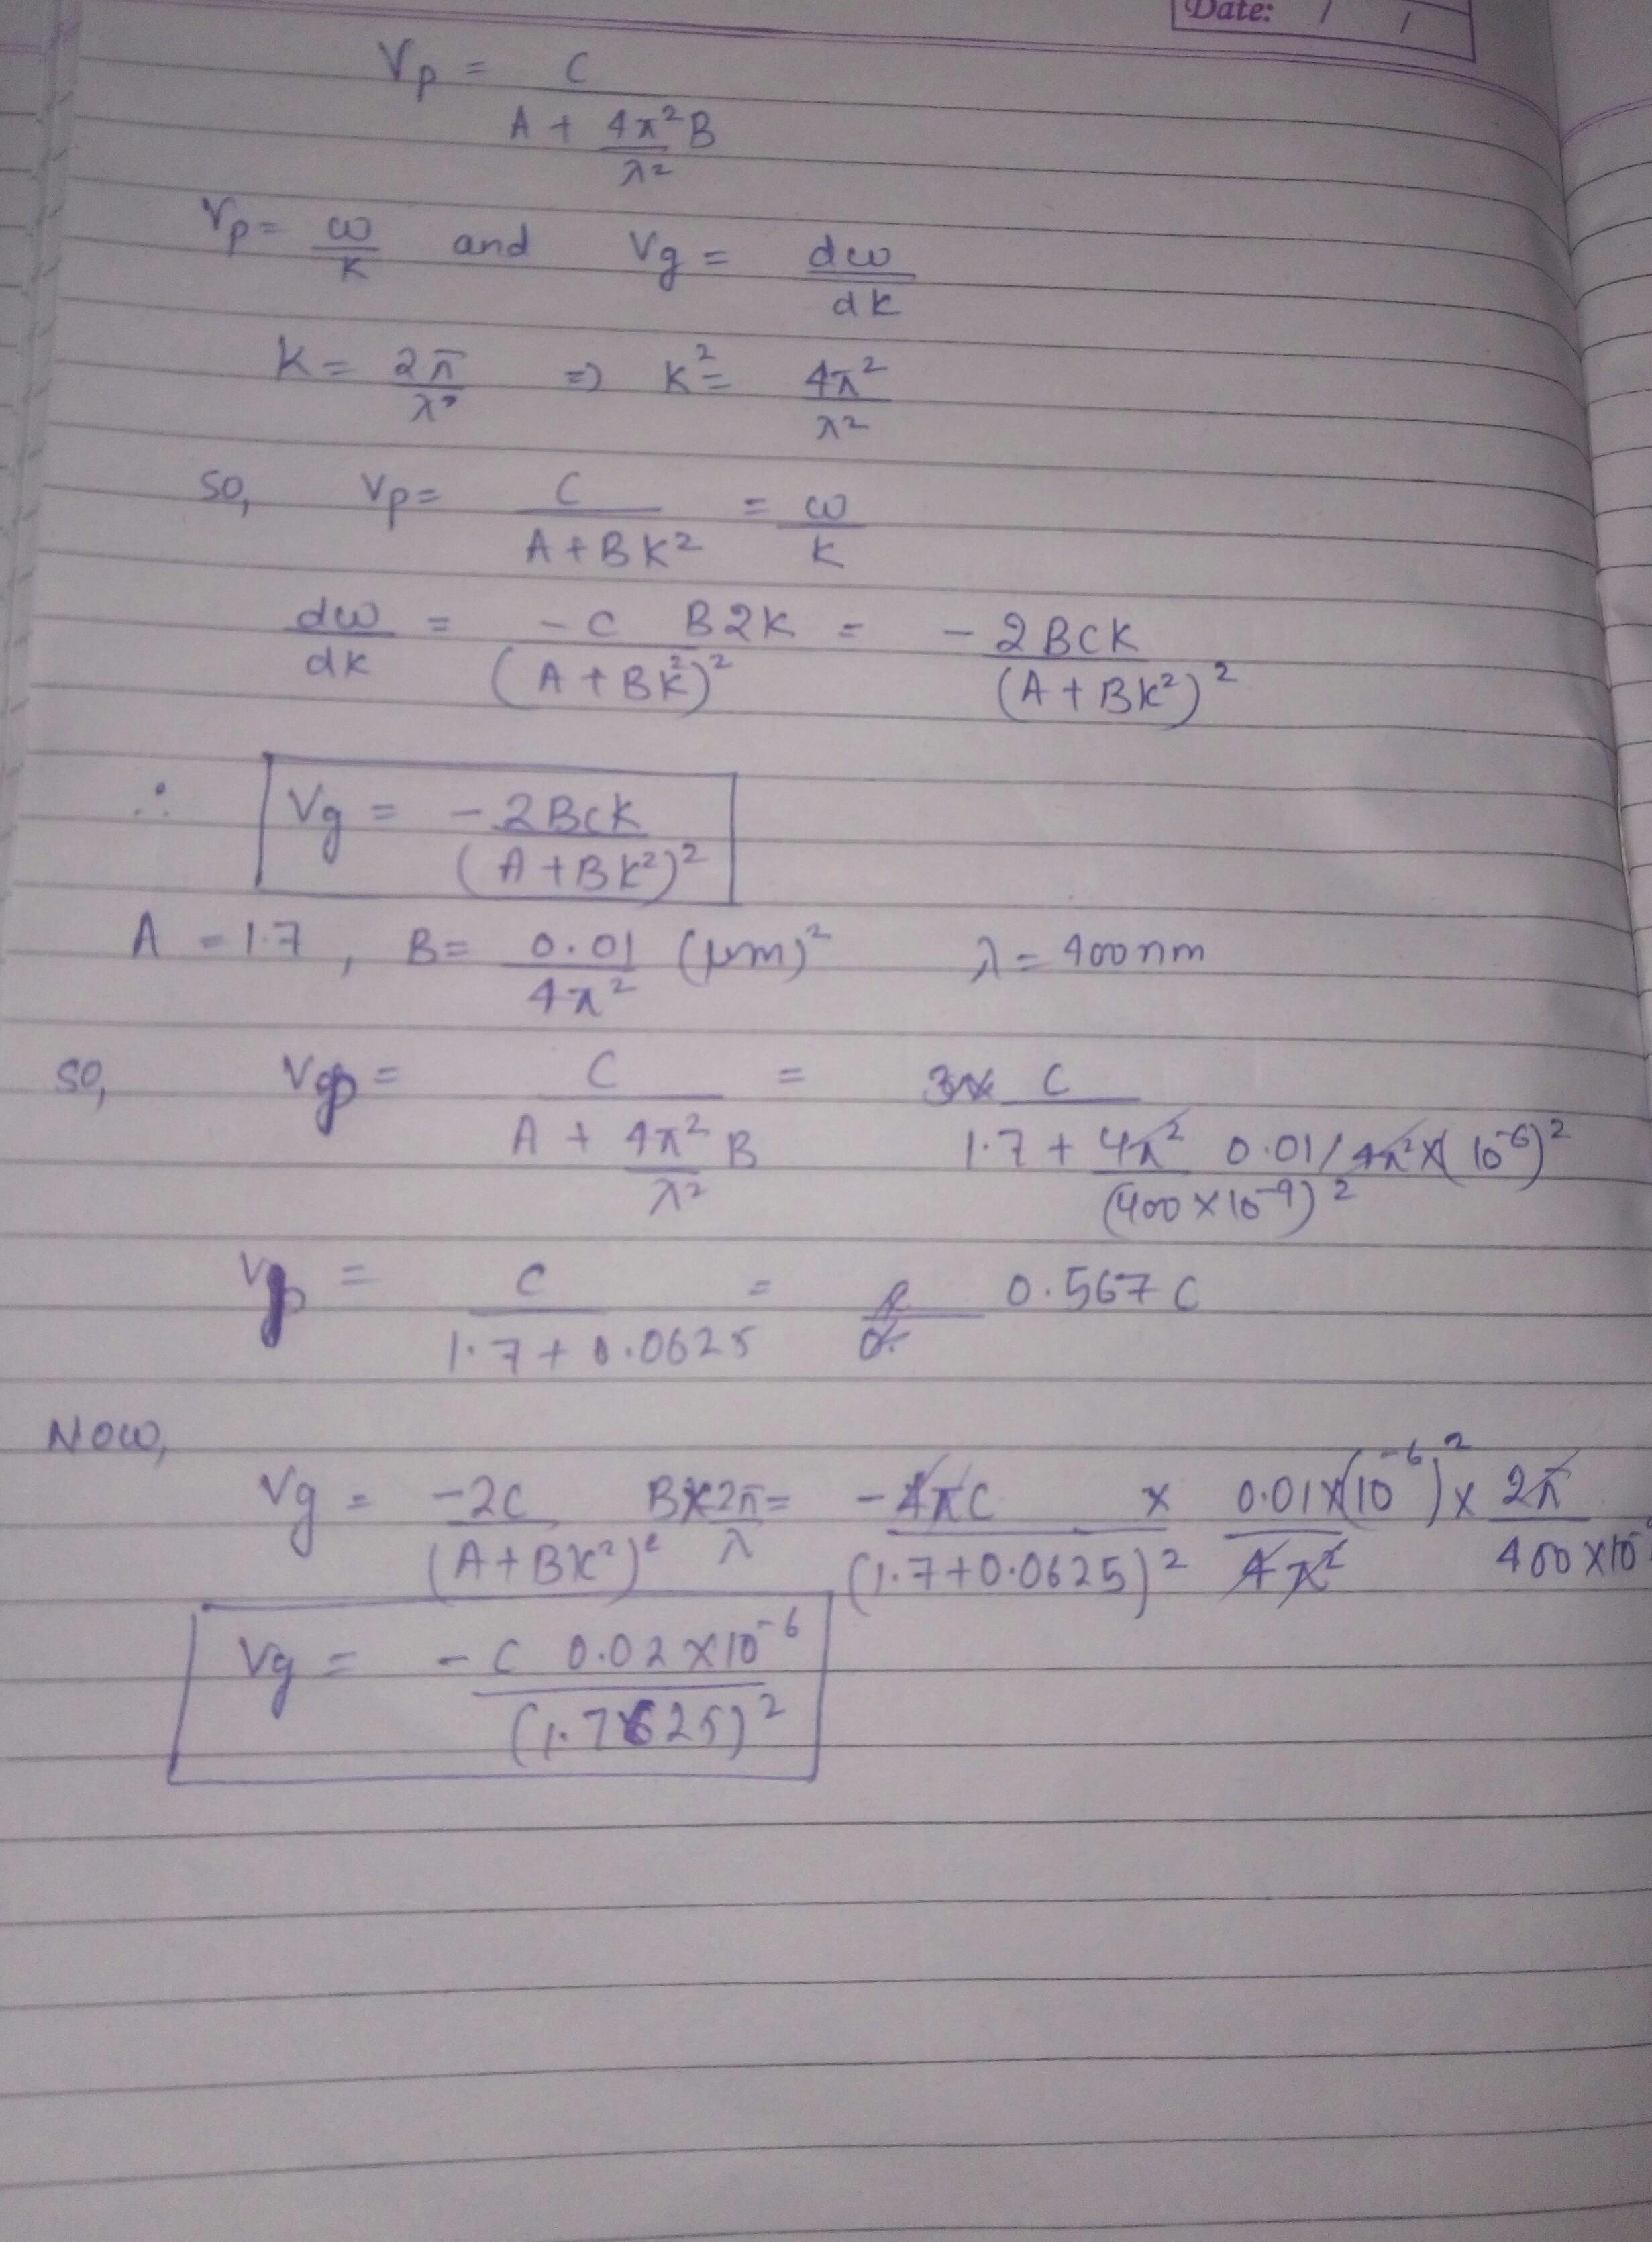 Date: / /
Vp = C / (A + 4π²B/λ²)
Vp = ω/K and Vg = dω/dK
K = 2π/λ ⇒ K² = 4π²/λ²
so, Vp = C/(A + BK²) = ω/K
dω/dK = -C B2K/(A + BK²)² = -2BCK/(A + BK²)²
∴ Vg = -2BCK/(A + BK²)²
A = 1.7, B = 0.01/4π² (μm)² λ = 400nm
so, Vp = C/(A + 4π²/λ² B) = C/(1.7 + 4π² 0.01/4π² × (10⁻⁶)²/(400 × 10⁻⁹)²)
Vp = C/(1.7 + 0.0625) = 0.567 C
Now,
Vg = -2C/(A + BK²)² B × 2π/λ = -4πC/(1.7 + 0.0625)² × 0.01 × (10⁻⁶)²/4π² × 2π/400 × 10
Vg = -C 0.02 × 10⁻⁶/(1.7625)²